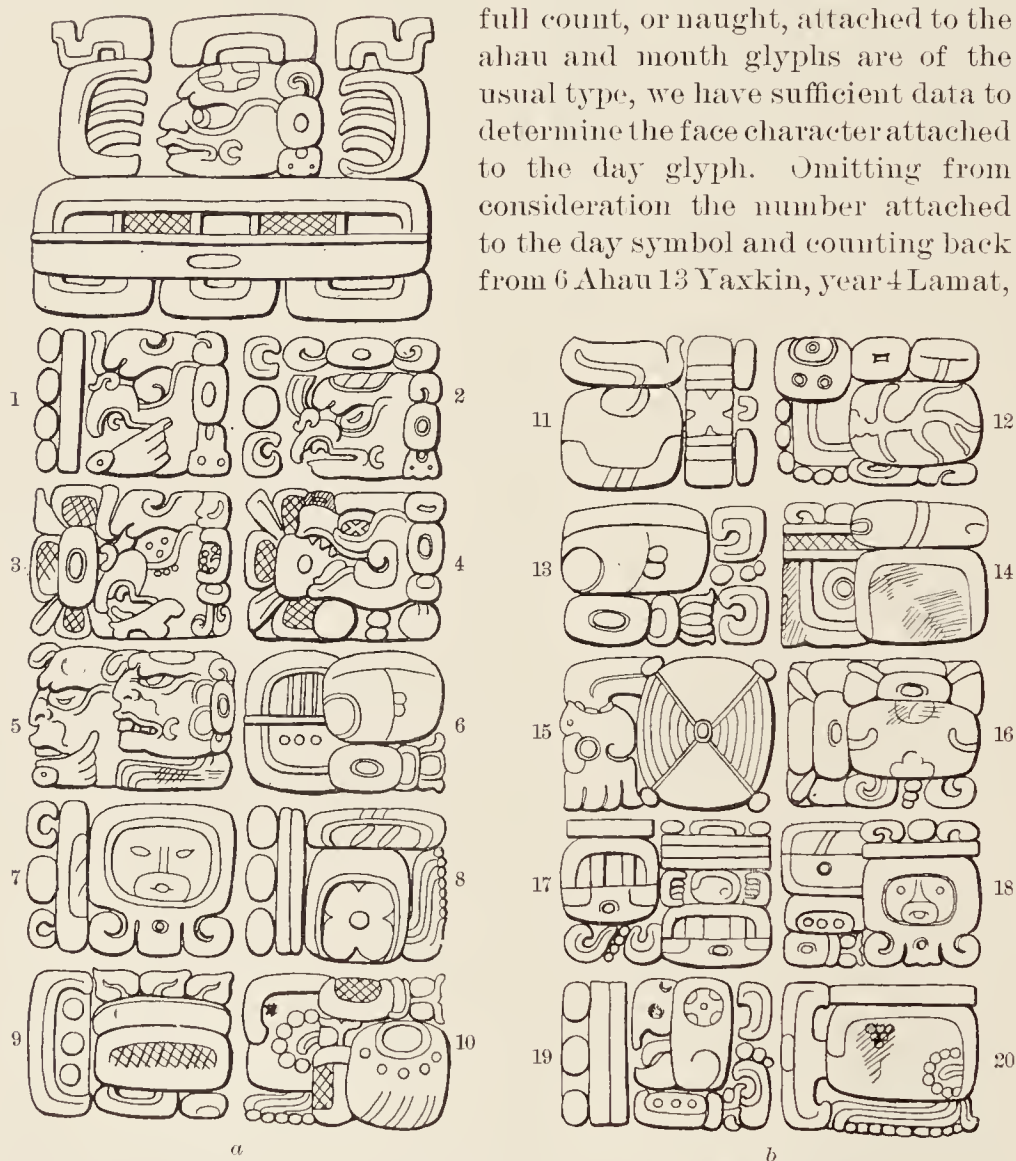 full count, or naught, attached to the
ahau and month glyphs are of the
usual type, we have sufficient data to
determine the face character attached
to the day glyph. Omitting from
consideration the number attached
to the day symbol and counting back
from 6 Ahau 13 Yaxkin, year 4 Lamat,
1 2
3 4
5 6
7 8
9 10
a
11 12
13 14
15 16
17 18
19 20
b